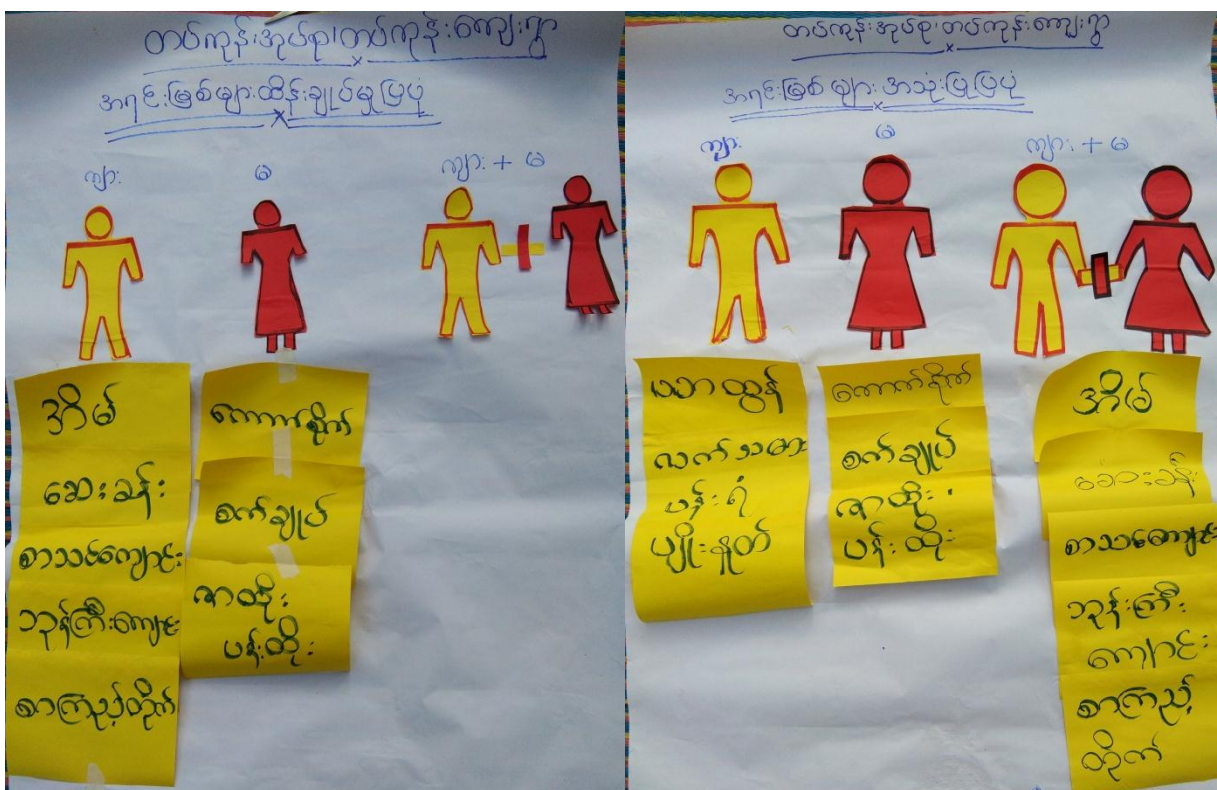 တပ်ကုန်းအုပ်စု၊တပ်ကုန်းကျေးရွာ
အရင်းမြစ်များထိန်းချုပ်မှုပြပုံ
ကျား
မ
ကျား + မ
အိမ်
ဆေးခန်း
စာသင်ကျောင်း
ဘုန်ကြီးကျောင်း
စာကြည့်တိုက်
ကောက်စိုက်
စက်ချုပ်
ဇာထိုး
ပန်းထိုး
တပ်ကုန်းအုပ်စု၊တပ်ကုန်းကျေးရွာ
အရင်းမြစ်များအသုံးပြုပြပုံ
ကျား
မ
ကျား + မ
ယာထွန်
လက်သမား
ပန်းရံ
ပျိုးနှုတ်
ကောက်စိုက်
စက်ချုပ်
ဇာထိုး
ပန်းထိုး
အိမ်
ဆေးခန်း
စာသင်ကျောင်း
ဘုန်းကြီး
ကျောင်း
စာကြည့်
တိုက်